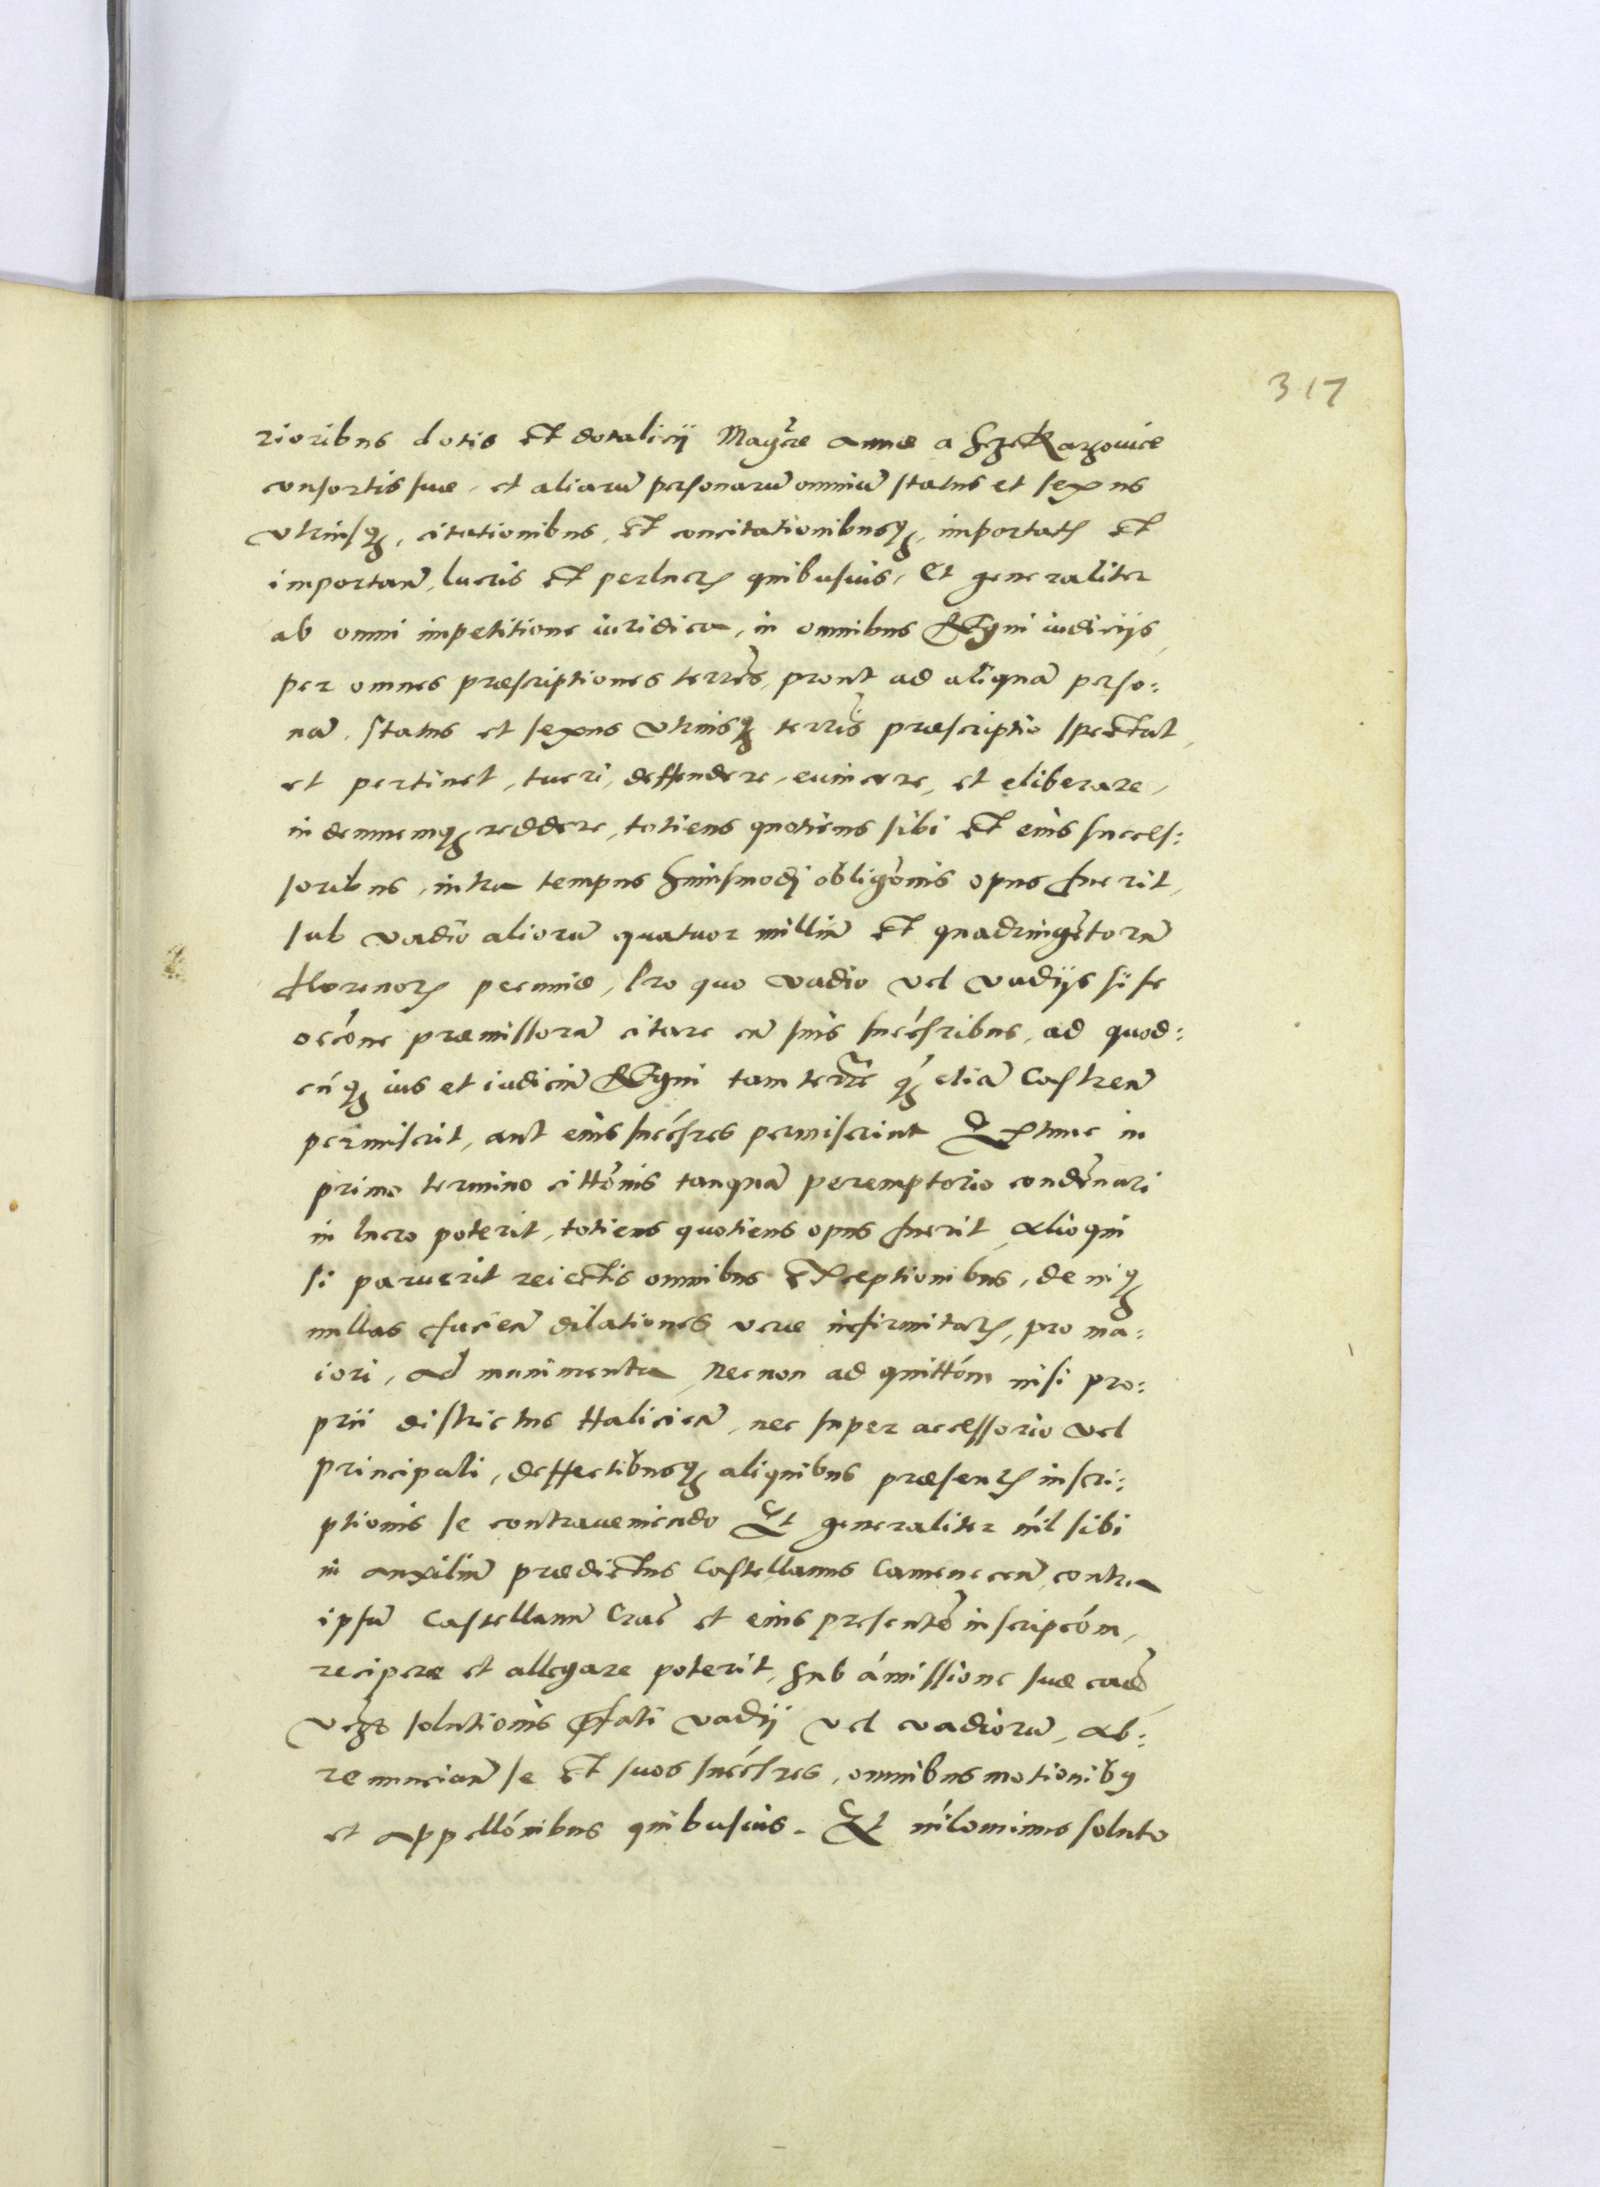 317
rioribus dotis et dotalicij Mag̃cæ Annæ a SzeKarzowice
consortis suæ, et aliarũ personarũ omniũ status et sexus
vtriusq, citationibus, et concitationibusq, importatꝝ et
importan̄, lucris et perlucꝝ quibusuis, Et generaliter
ab omni impetitione iuridica, in omnibus Regni iudicijs,
per omnes præscriptiones terrẽs, prout ad aliquã perso:
nã, status et sexus vtriusq terrĩs præscriptio spectat,
et pertinet, tueri, deffendere, euincere, et eliberare,
indemnemq reddere, totiens quotiens sibi et eius succes:
soribus, intra tempus huiusmodj obligõnis opus fuerit,
sub vadio aliorũ quatuor milliũ et quadringẽtorũ
florenoꝝ pecuniæ, Pro quo vadio vel vadijs si se
occõne præmissorũ citare cũ suis succ̃sribus, ad quod:
cũq ius et iudiciũ Regni tam terr̃e q̃ etiã Castren̄
permiserit, aut eius succ̃sres permiserint Extunc in
primo termino cittõnis tanquã peremptorio condẽnari
in lucro poterit, totiens quotiens opus fuerit, Alioqui
si paruerit reiectis omnibus exceptionibus, deniq
nullas facien̄ dilationes veræ infirmitaꝝ, pro ma:
iori, ad munimenta, Necnon ad quittõm nisi pro:
prii districtus Halicien̄, nec super accessorio vel
principali, deffectibusq aliquibus præsenꝝ inscri:
ptionis se contraueniendo Et generaliter nĩl sibi
in auxiliũ prædictus Castellanus Camenecen̄ contra
ipsũ Castellanũ Crac̃ et eius presentẽ inscripcõm,
recipere et allegare poterit, sub ámissione suæ cauẽ
solutionis p̃fati vadij vel vadiorũ, Ab:
renuncian̄ se et suos succ̃sres, omnibus motionibq
et appellõnibus quibusuis. Et nĩlominus soluto